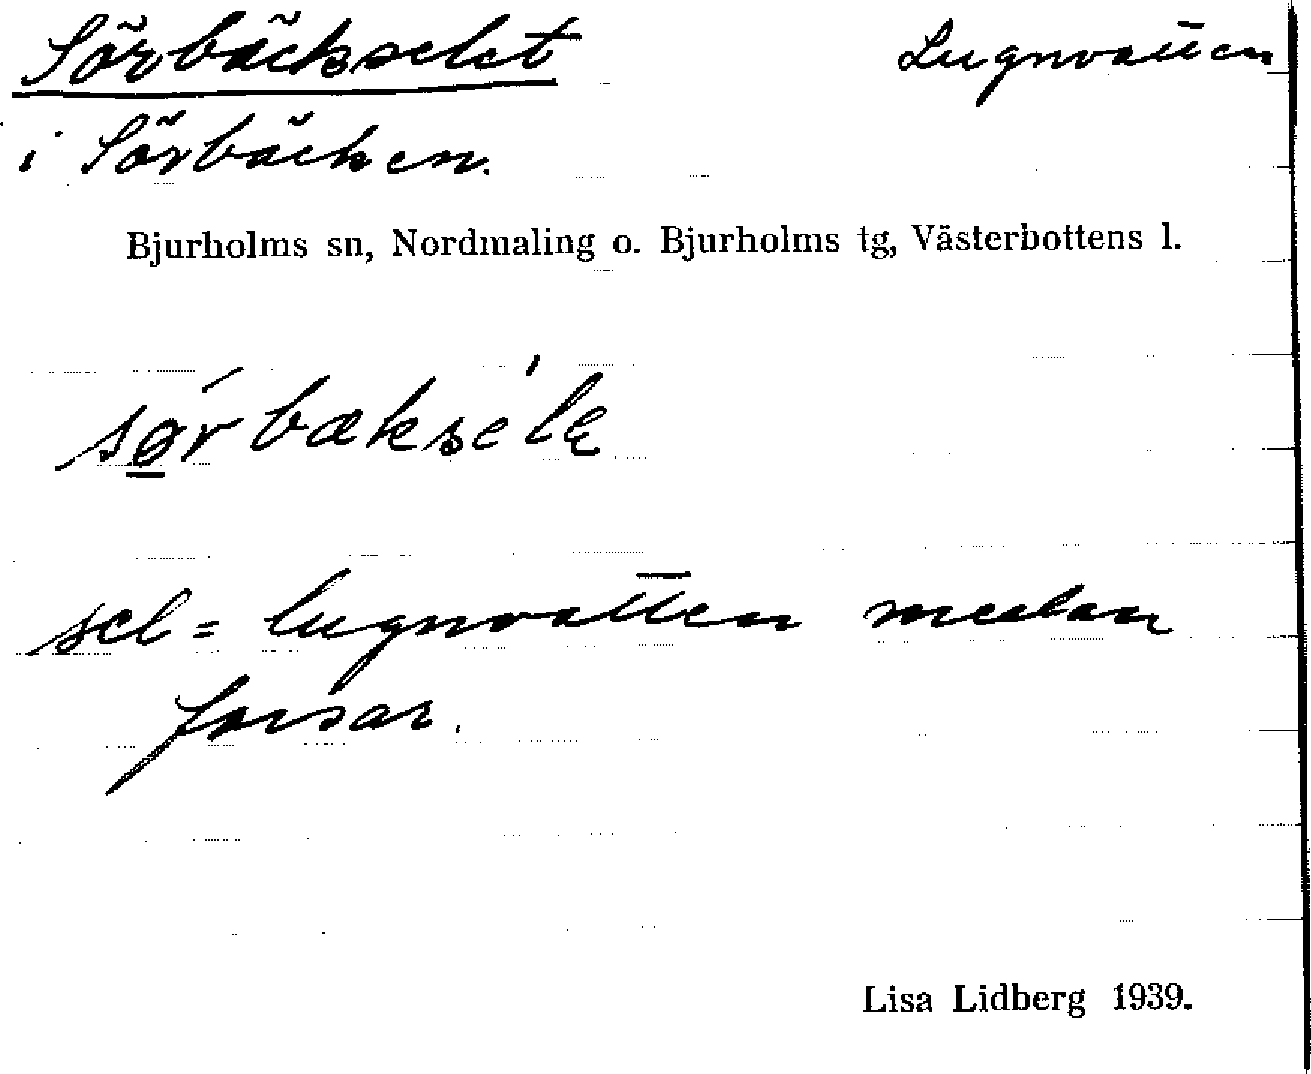 Sörbäckselet Lugnvatten
i Sörbäcken.
Bjurholms sn, Nordmaling o. Bjurholms tg, Västerbottens l.
sø̲ŕbæksé'lę
sel = lugnvatten mellan
forsar.
Lisa Lidberg 1939.